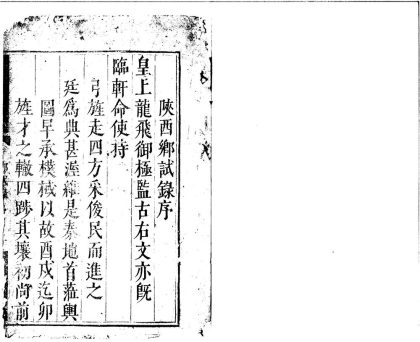 陝西鄉試錄序
皇上龍飛御極監古右文亦旣
臨軒命使持
弓旌走四方采俊民而進之
廷爲典甚渥維是秦地首蒞輿
圖早承棫樸以故酉戌迄卯
旌才之轍四踄其壤初尚前